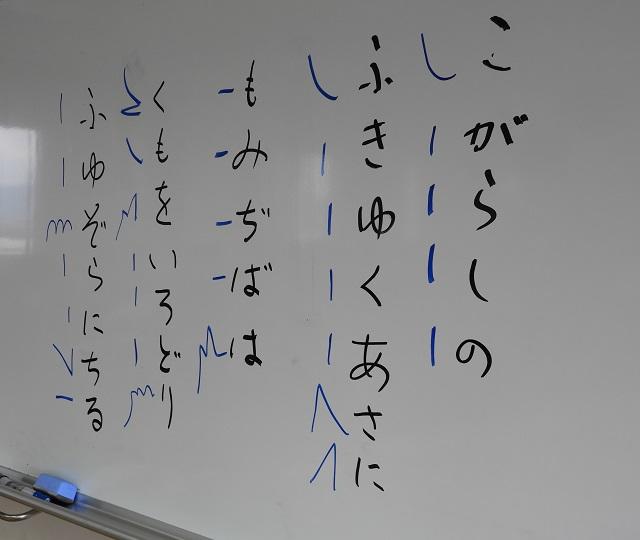 こがらしの
ふきゆくあさに
もみぢばは
くもをいろどり
ふゆぞらにちる